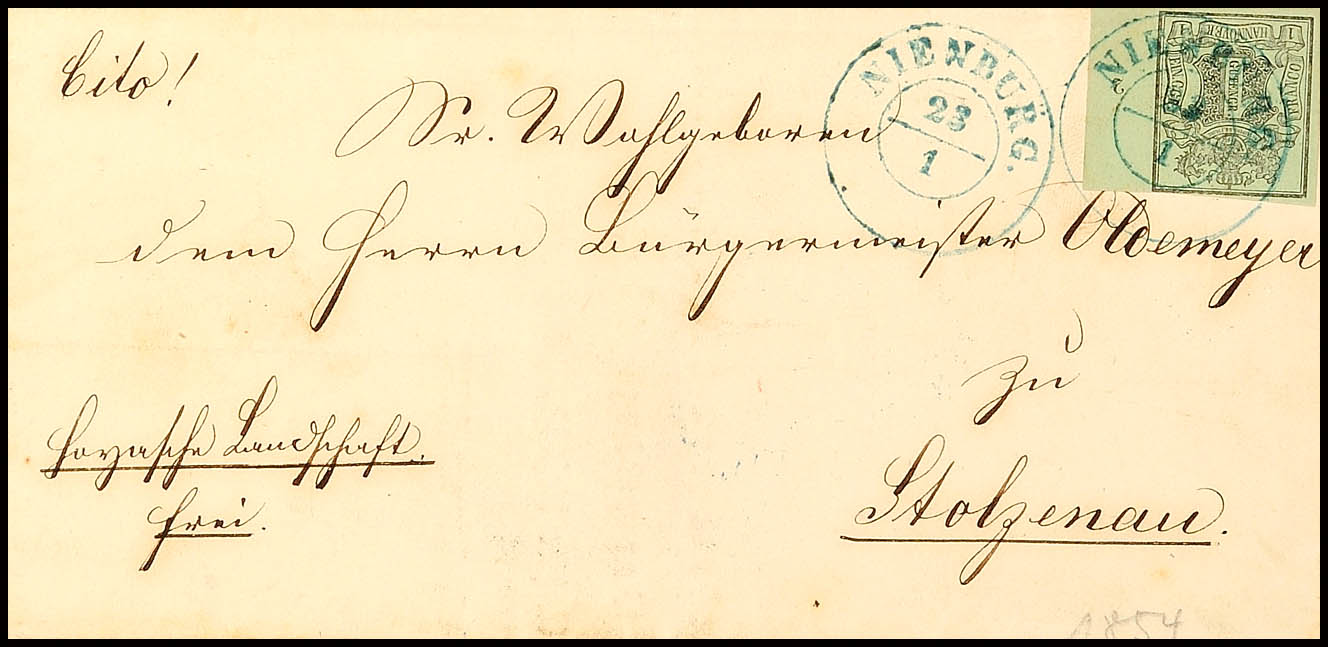 Cito!
NIENBURG.
23
1
NIENBURG
1
1 HANNOVER 1
EIN GGR.
GUTENGR.
Sr. Wohlgeboren
dem Herrn Bürgermeister Oldemeyer
zu
Hoyasche Landschaft.
frei.
Stolzenau.
1854